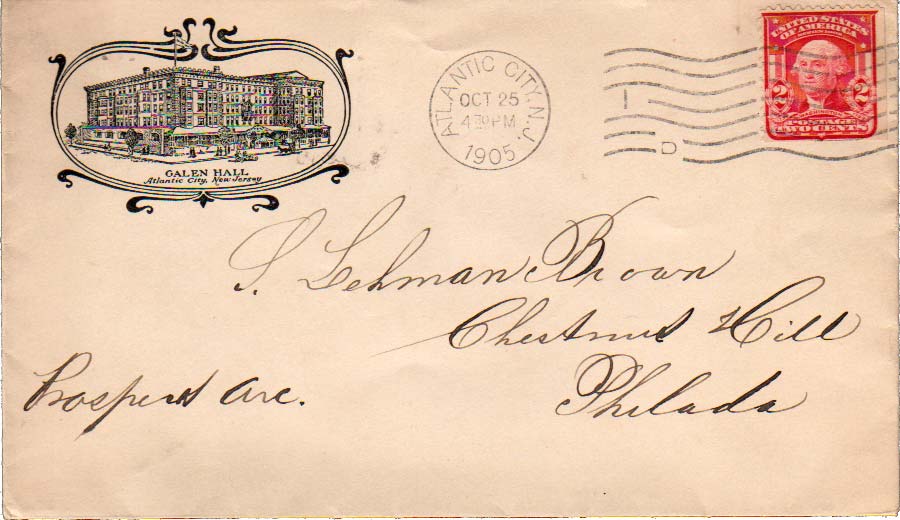 GALEN HALL
Atlantic City, New Jersey
ATLANTIC CITY, N.J.
OCT 25
4 30 PM
1905
D
UNITED STATES
OF AMERICA
SERIES 1902
2 2
POSTAGE
TWO CENTS
S. Lehman Brown
Chestnut Hill
Philada
Prospect Ave.